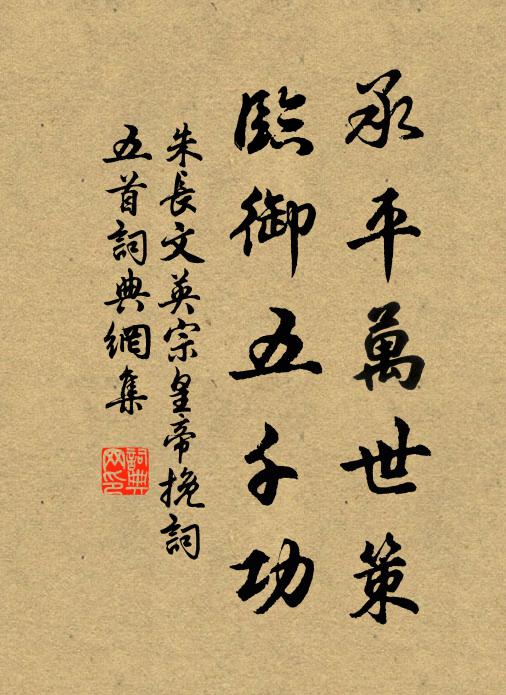 承平萬世策
臨御五千功
朱長文英宗皇帝挽詞
五首詞典網集
詞典
网印